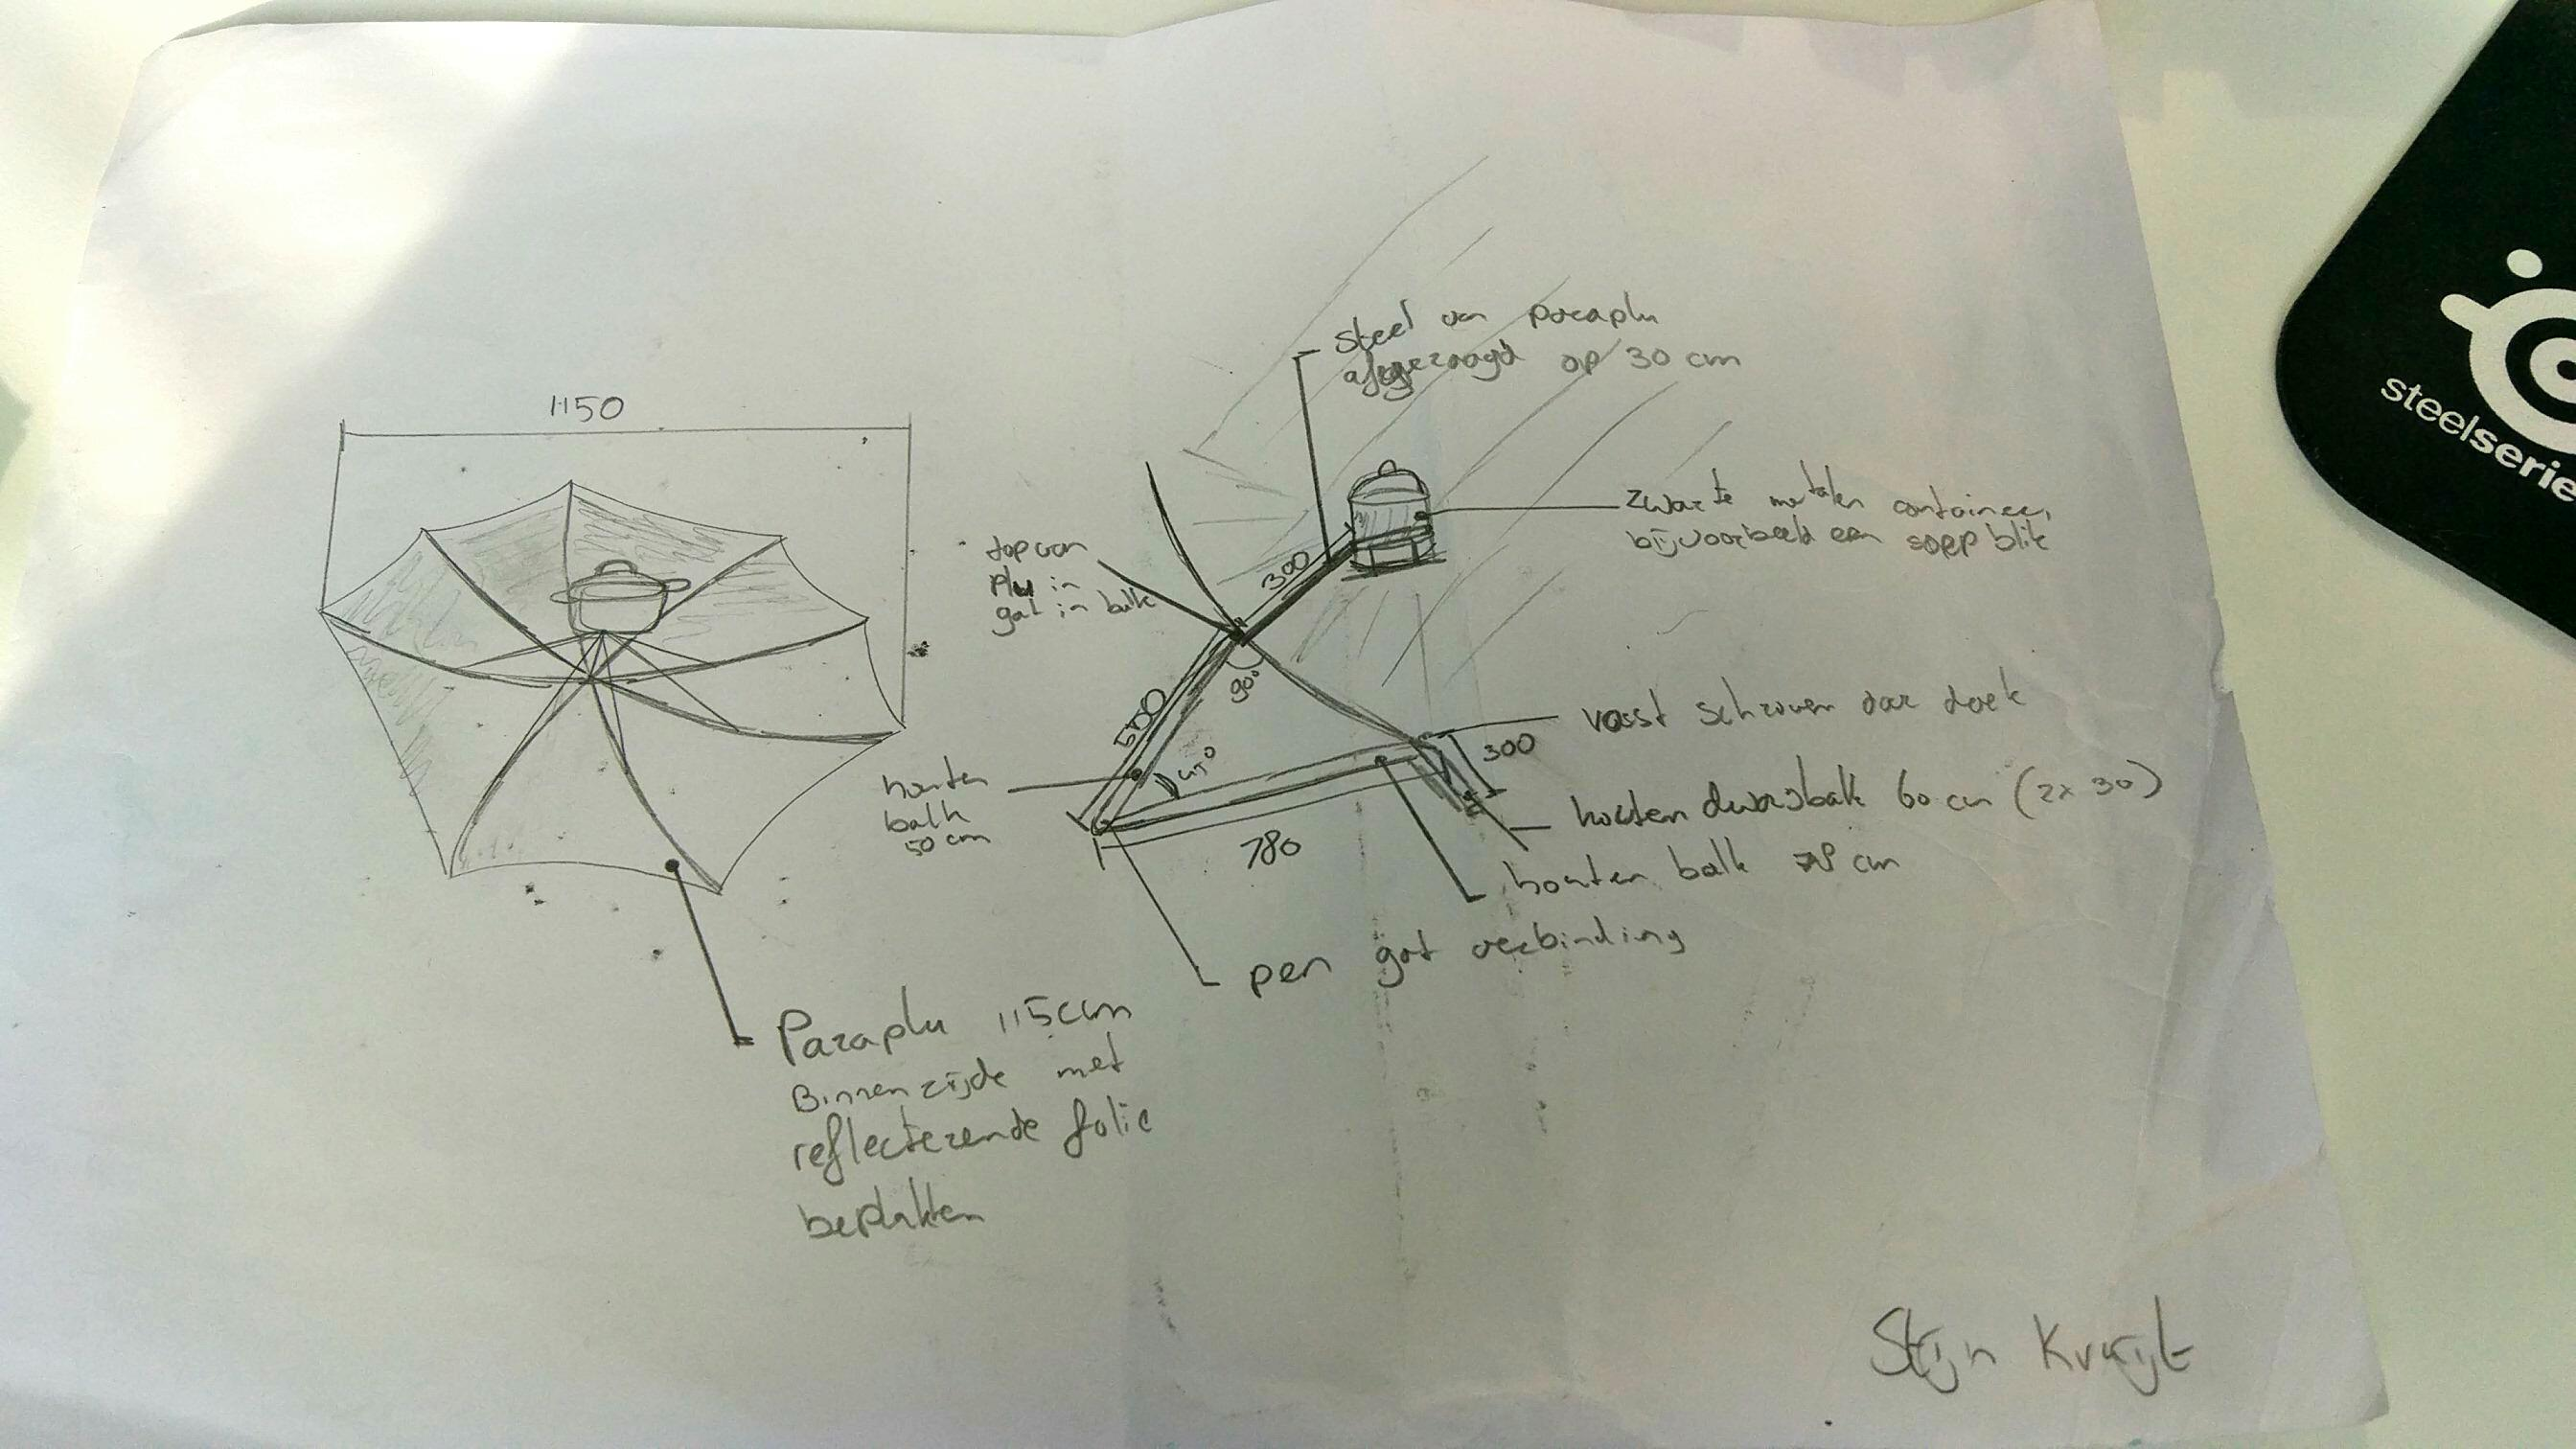 1150
steel van paraplu
afgezaagd op 30 cm
zwarte metalen container,
bijvoorbeeld een soep blik
top van
Plu in
gat in balk
300
90°
500
45°
vast schroeven aan doek
300
houten
balk
50 cm
houten dwarsbalk 60 cm (2x 30)
780
houten balk 78 cm
pen gat verbinding
Paraplu 115cm
Binnenzijde met
reflecterende folie
beplakken
Stijn
steelserie